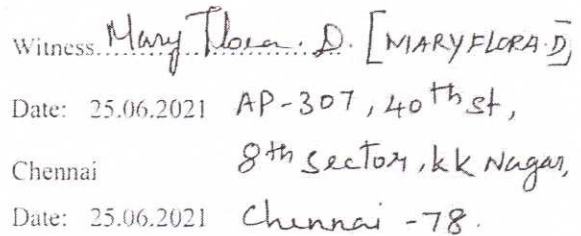 Witness....Mary Flora. D. [MARY FLORA.D]
Date: 25.06.2021 AP-307, 40th st,
Chennai 8th sector, kk Nagar,
Date: 25.06.2021 Chennai -78.